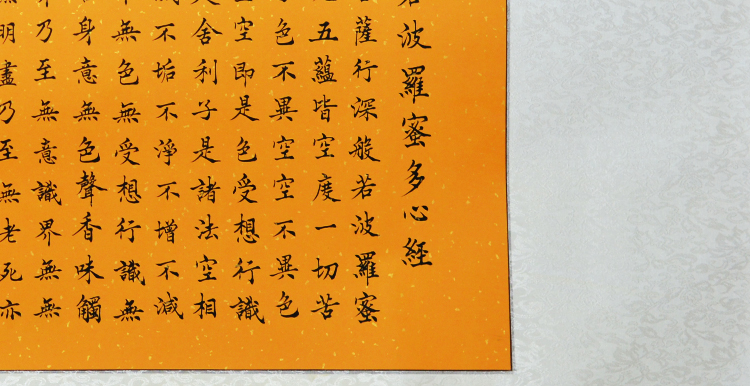 若波羅蜜多心經
薩行深般若波羅蜜
五蘊皆空度一切苦
色不異空空不異色
空即是色受想行識
舍利子是諸法空相
不垢不淨不增不減
無色無受想行識無
身意無色聲香味觸
乃至無意識界無無
明盡乃至無老死亦